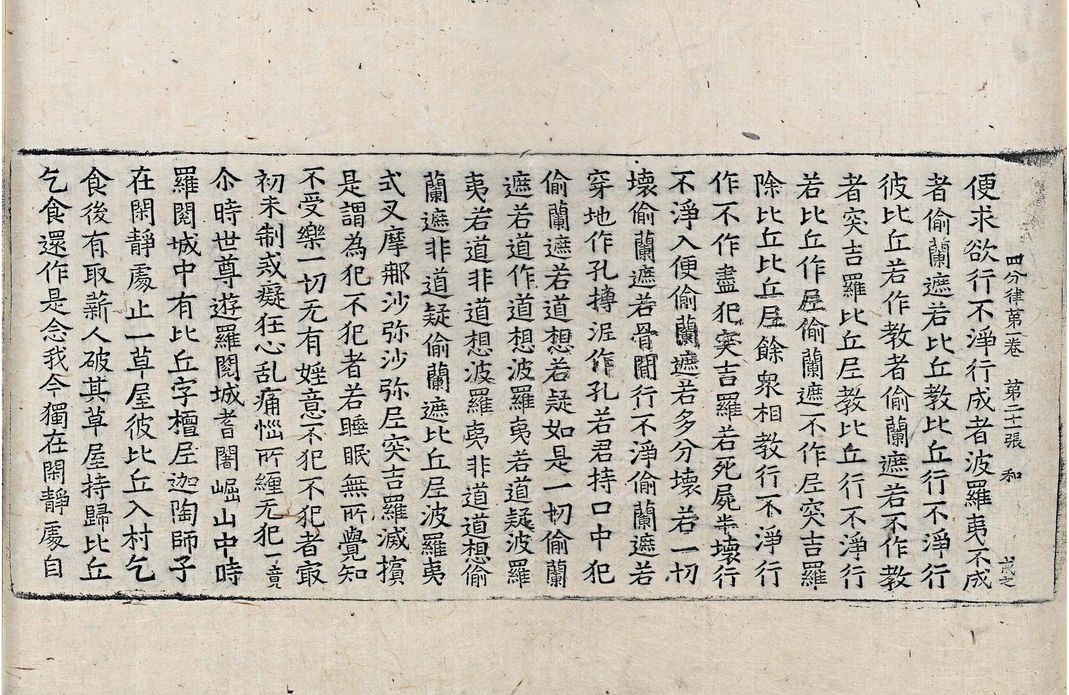 四分律第一卷 第二十一張 和
便求欲行不淨行成者波羅夷不成
者偷蘭遮若比丘教比丘行不淨行
彼比丘若作教者偷蘭遮若不作教
者突吉羅比丘尼教比丘行不淨行
若比丘作尼偷蘭遮不作尼突吉羅
除比丘比丘尼餘衆相教行不淨行
作不作盡犯突吉羅若死屍半壞行
不淨入便偷蘭遮若多分壞若一切
壞偷蘭遮若骨間行不淨偷蘭遮若
穿地作孔摶泥作孔若君持口中犯
偷蘭遮若道想若疑如是一切偷蘭
遮若道作道想波羅夷若道疑波羅
夷若道非道想波羅夷非道道想偷
蘭遮非道疑偷蘭遮比丘尼波羅夷
式叉摩那沙弥沙弥尼突吉羅滅擯
是謂為犯不犯者若睡眠無所覺知
不受樂一切无有婬意不犯不犯者㝡
初未制戒癡狂心乱痛惱所纏无犯一竟
尒時世尊遊羅閱城耆闍崛山中時
羅閱城中有比丘字檀尼迦陶師子
在閑靜處止一草屋彼比丘入村乞
食後有取薪人破其草屋持歸比丘
乞食還作是念我今獨在閑靜處自